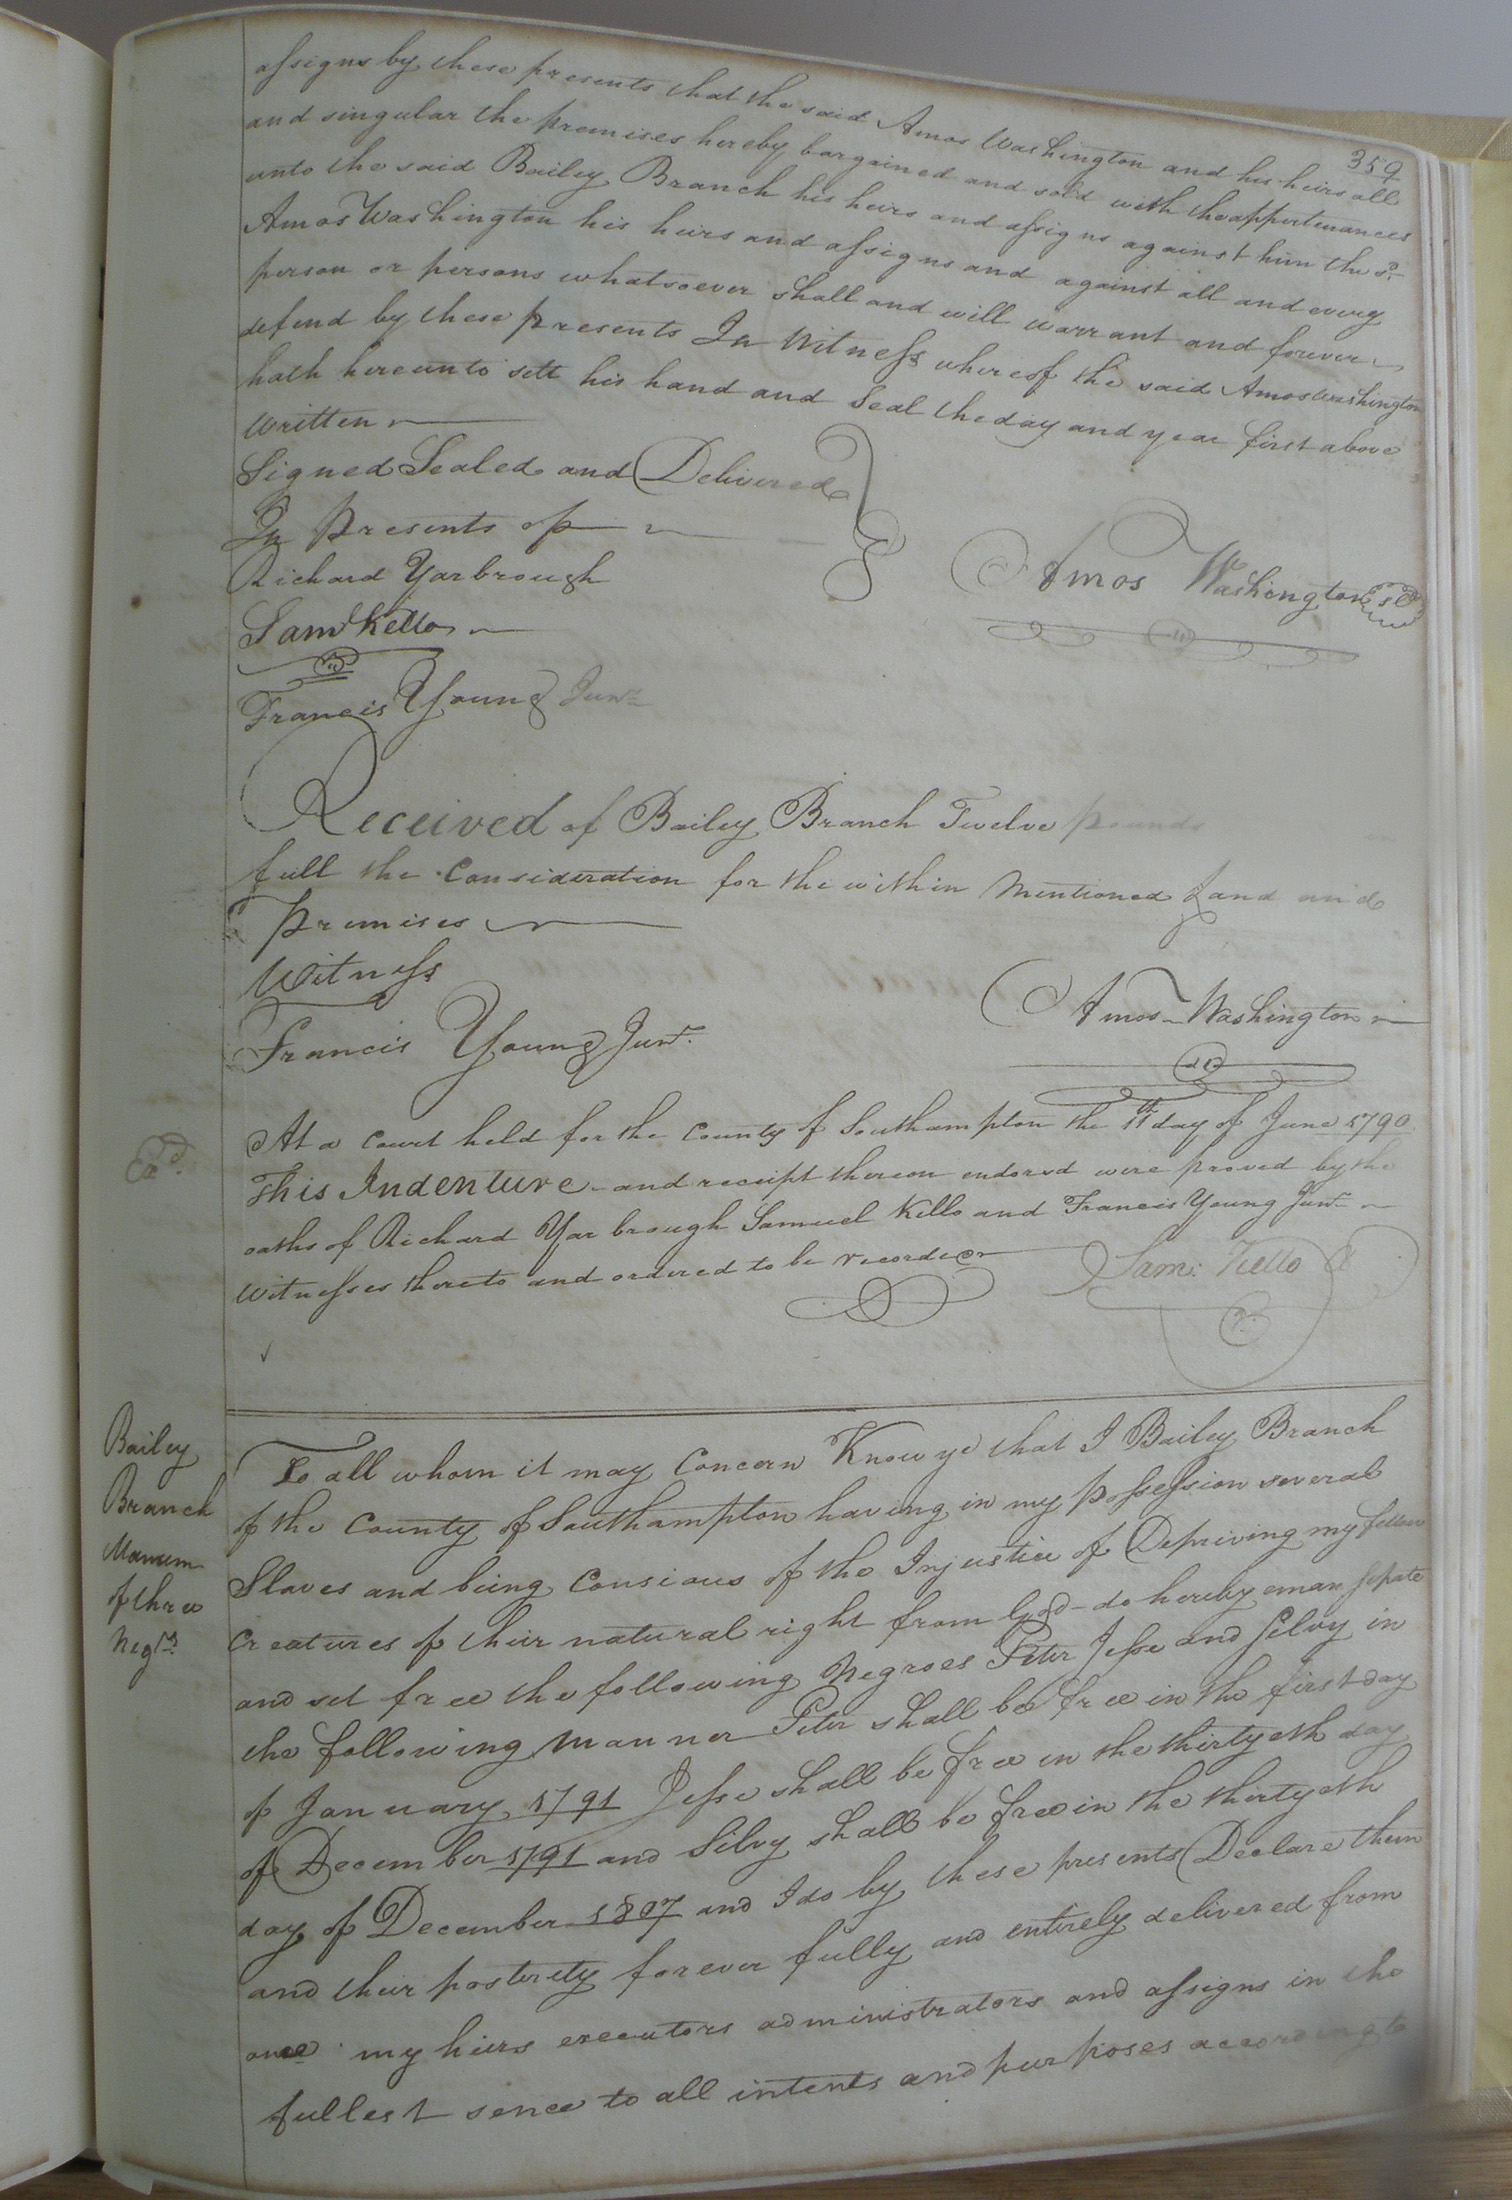 359
assigns by these presents that the said Amos Washington and his heirs all
and singular the premises hereby bargained and sold with the appurtenances
unto the said Bailey Branch his heirs and assigns against him the sd.
Amos Washington his heirs and assigns and against all and every
person or persons whatsoever shall and will warrant and forever
defend by these presents In Witness whereof the said Amos Washington
hath hereunto sett his hand and Seal the day and year first above
written
Signed Sealed and Delivered
In Presents of
Richard Yarbrough
Saml Kello
Francis Young Junr
Amos Washington
Received of Bailey Branch Twelve pounds
full the Consideration for the within Mentioned Land and
Premises
Witness
Francis Young Junr.
Amos Washington
At a Court held for the County of Southampton the 11th day of June 1790
This Indenture and receipt thereon endorsd were proved by the
oaths of Richard Yarbrough Samuel Kello and Francis Young Junr
Witnesses thereto and ordered to be recorded
Exd.
Sam: Kello
Bailey
Branch
Manum
of three
Negrs.
To all whom it may Concern Know ye that I Bailey Branch
of the County of Southampton having in my Possession several
Slaves and being Consious of the Injustice of Depriving my fellow
Creatures of their natural right from God do hereby emansipate
and set free the following Negroes Peter Jesse and Silvy in
the following Manner Peter shall be free in the first day
of January 1791 Jesse shall be free in the thirtyeth day
of December 1791 and Silvy shall be free in the thirtyeth
day of December 1807 and I do by these presents Declare them
and their posterity forever fully and entirely delivered from
me my heirs executors administrators and assigns in the
fullest sence to all intents and purposes according to